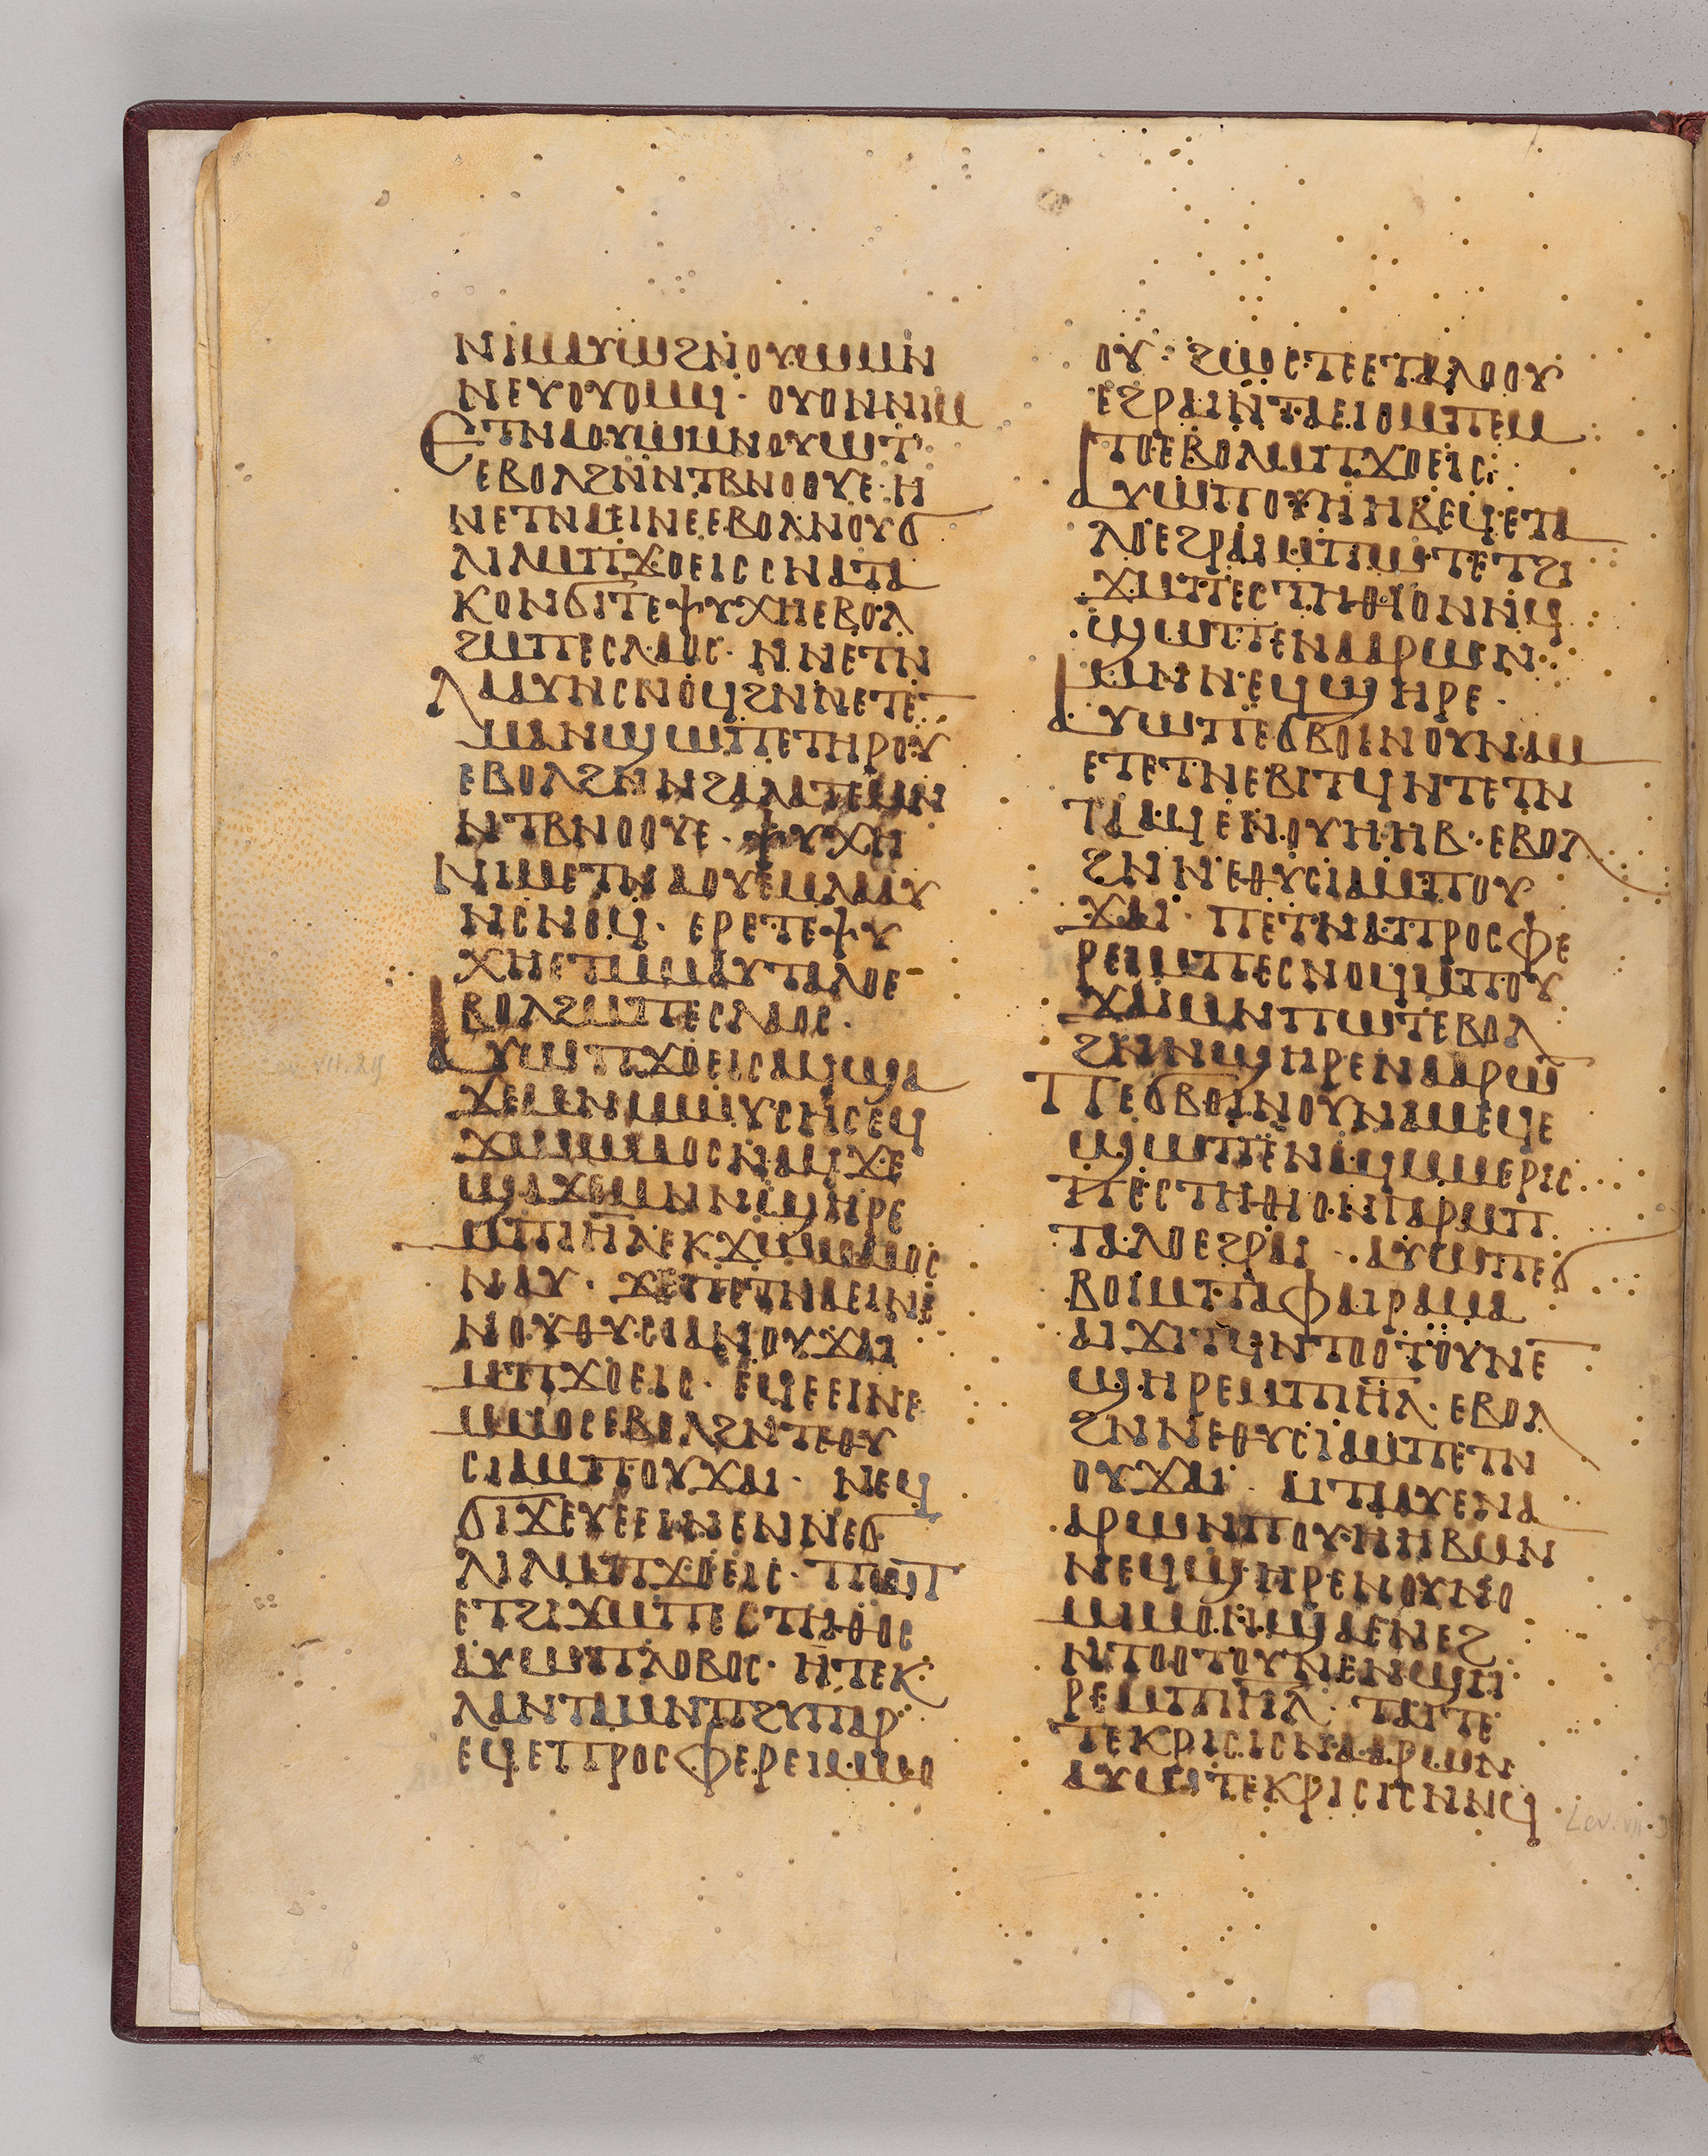 ⲛⲓⲙⲁⲩⲱϩⲛⲟⲩⲱⲙⲛ
ⲛⲉⲩⲟⲩⲟⲙϥ· ⲟⲩⲟⲛⲛⲓⲙ
ⲉⲧⲛⲁⲟⲩⲱⲙⲛⲟⲩⲱⲧ
ⲉⲃⲟⲗϩⲛⲛⲧⲃⲛⲟⲟⲩⲉ·ⲏ
ⲛⲉⲧⲛⲁⲉⲓⲛⲉⲉⲃⲟⲗⲛⲟⲩϭ
ⲗⲓⲗⲙⲡϫⲟⲉⲓⲥⲥⲛⲁⲧⲁ
ⲕⲟⲛϭⲓⲧⲉⲯⲩⲭⲏⲉⲃⲟⲗ
ϩⲙⲡⲉⲥⲗⲁⲟⲥ· ⲛⲛⲉⲧⲛ
ⲗⲁⲁⲩⲛⲥⲛⲟϥϩⲛⲛⲉⲧⲉ
ⲙⲁⲛϣⲱⲡⲉⲧⲏⲣⲟⲩ
ⲉⲃⲟⲗϩⲛⲛϩⲁⲗⲁⲧⲉⲙⲛ
ⲛⲧⲃⲛⲟⲟⲩⲉ· ⲯⲩⲭⲏ
ⲛⲓⲙⲉⲧⲛⲁⲟⲩⲉⲙⲗⲁⲁⲩ
ⲛⲥⲛⲟϥ· ⲉⲣⲉⲧⲉⲯⲩ
ⲭⲏⲉⲧⲙⲙⲁⲩⲧⲁⲗⲟⲉ
ⲃⲟⲗϩⲙⲡⲉⲥⲗⲁⲟⲥ·
ⲁⲩⲱⲡϫⲟⲉⲓⲥⲁϥϣⲁ
ϫⲉⲙⲛⲙⲱⲩⲥⲏⲥⲉϥ
ϫⲱⲙⲙⲟⲥⲛⲁϥϫⲉ
ϣⲁϫⲉⲙⲛⲛϣⲏⲣⲉ
ⲙⲡⲓⲏⲗⲉⲕϫⲱⲙⲙⲟⲥ
ⲛⲁⲩ· ϫⲉⲡⲉⲧⲛⲁⲉⲓⲛⲉ
ⲛⲟⲩⲑⲩⲥⲓⲁⲛⲟⲩϫⲁⲓ
ⲙⲡϫⲟⲉⲓⲥ· ⲉϥⲉⲉⲓⲛⲉ
ⲙⲙⲟⲥⲉⲃⲟⲗϩⲛⲧⲉⲑⲩ
ⲥⲓⲁⲙⲡⲟⲩϫⲁⲓ· ⲛⲉϥ
ϭⲓϫⲉⲩⲉⲉⲓⲛⲉⲛⲛⲉϭ
ⲗⲓⲗⲙⲡϫⲟⲉⲓⲥ· ⲡⲱⲧ
ⲉⲧϩⲓϫⲙⲡⲉⲥⲧⲏⲑⲟⲥ
ⲁⲩⲱⲡⲗⲟⲃⲟⲥ· ⲏⲧⲉⲕ
ⲗⲁⲛⲧⲁⲙⲛⲡϩⲩⲡⲁⲣ
ⲉϥⲉⲡⲣⲟⲥⲫⲉⲣⲉⲓⲙⲙⲟ
ⲟⲩ· ϩⲱⲥⲧⲉⲉⲧⲁⲗⲟⲟⲩ
ⲉϩⲣⲁⲓⲛⲧⲁⲉⲓⲟⲙⲡⲉⲙ
ⲧⲟⲉⲃⲟⲗⲙⲡϫⲟⲉⲓⲥ:
ⲁⲩⲱⲡⲟⲩⲏⲏⲃⲉϥⲉⲧⲁ
ⲗⲟⲉϩⲣⲁⲓⲙⲡⲱⲧⲉⲧϩⲓ
ϫⲙⲡⲉⲥⲧⲏⲑⲓⲟⲛⲛϥ
ϣⲱⲡⲉⲛⲁⲁⲣⲱⲛ·
ⲙⲛⲛⲉϥϣⲏⲣⲉ·
ⲁⲩⲱⲡⲉϭⲃⲟⲓⲛⲟⲩⲛⲁⲙ
ⲉⲧⲉⲧⲛⲉⲃⲓⲧϥⲛⲧⲉⲧⲛ
ⲧⲁⲁϥⲉⲛⲟⲩⲏⲏⲃ· ⲉⲃⲟⲗ
ϩⲛⲛⲉⲑⲩⲥⲓⲁⲙⲡⲟⲩ
ϫⲁⲓ· ⲡⲉⲧⲛⲁⲡⲣⲟⲥⲫⲉ
ⲣⲉⲓⲙⲡⲉⲥⲛⲟϥⲙⲡⲟⲩ
ϫⲁⲓⲙⲛⲡⲱⲧⲉⲃⲟⲗ
ϩⲛⲛϣⲏⲣⲉⲛⲁⲁⲣⲱ
ⲡⲉϭⲃⲟⲓⲛⲟⲩⲛⲁⲙⲉϥⲉ
ϣⲱⲡⲉⲛⲁϥⲙⲙⲉⲣⲓⲥ
ⲡⲉⲥⲧⲏⲑⲓⲟⲛⲅⲁⲣⲙⲡ
ⲧⲁⲗⲟⲉϩⲣⲁⲓ· ⲁⲩⲱⲡⲉϭ
ⲃⲟⲓⲙⲡⲁⲫⲁⲓⲣⲁⲙⲁ
ⲁⲓϫⲓⲧϥⲛⲧⲟⲟⲧⲟⲩⲛⲉ
ϣⲏⲣⲉⲙⲡⲓⲏⲗ· ⲉⲃⲟⲗ
ϩⲛⲛⲉⲑⲩⲥⲓⲁⲙⲡⲉⲧⲛ
ⲟⲩϫⲁⲓ· ⲁⲓⲧⲁⲁⲩⲉⲛⲁ
ⲁⲣⲱⲛⲡⲟⲩⲏⲏⲃⲙⲛ
ⲛⲉϥϣⲏⲣⲉⲛⲟⲩⲛⲟ
ⲙⲓⲙⲟⲛϣⲁⲉⲛⲉϩ
ⲛⲧⲟⲟⲧⲟⲩⲛⲉⲛϣⲏ
ⲣⲉⲙⲡⲓⲏⲗ· ⲧⲁⲓⲧⲉ
ⲧⲉⲕⲣⲓⲥⲓⲥⲛⲁⲁⲣⲱⲛ
ⲁⲩⲱⲧⲉⲕⲣⲓⲥⲓⲥⲛⲛϥ